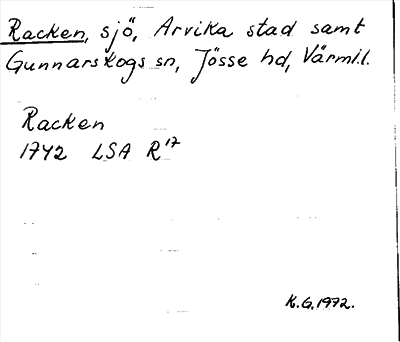 Racken, sjö, Arvika stad samt
Gunnarskogs sn, Jösse hd, Värml.l.
Racken
1742 LSA R¹⁷
K.G.1972.